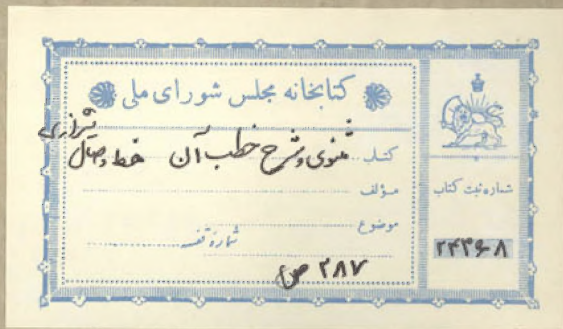 کتابخانه مجلس شورای ملی
کتاب مثنوی و شرح خطب آن خط وصال شیرازی
مؤلف
موضوع
شماره قفسه
۲۸۷ ص
شماره ثبت کتاب
۲۴۳۶۰۸